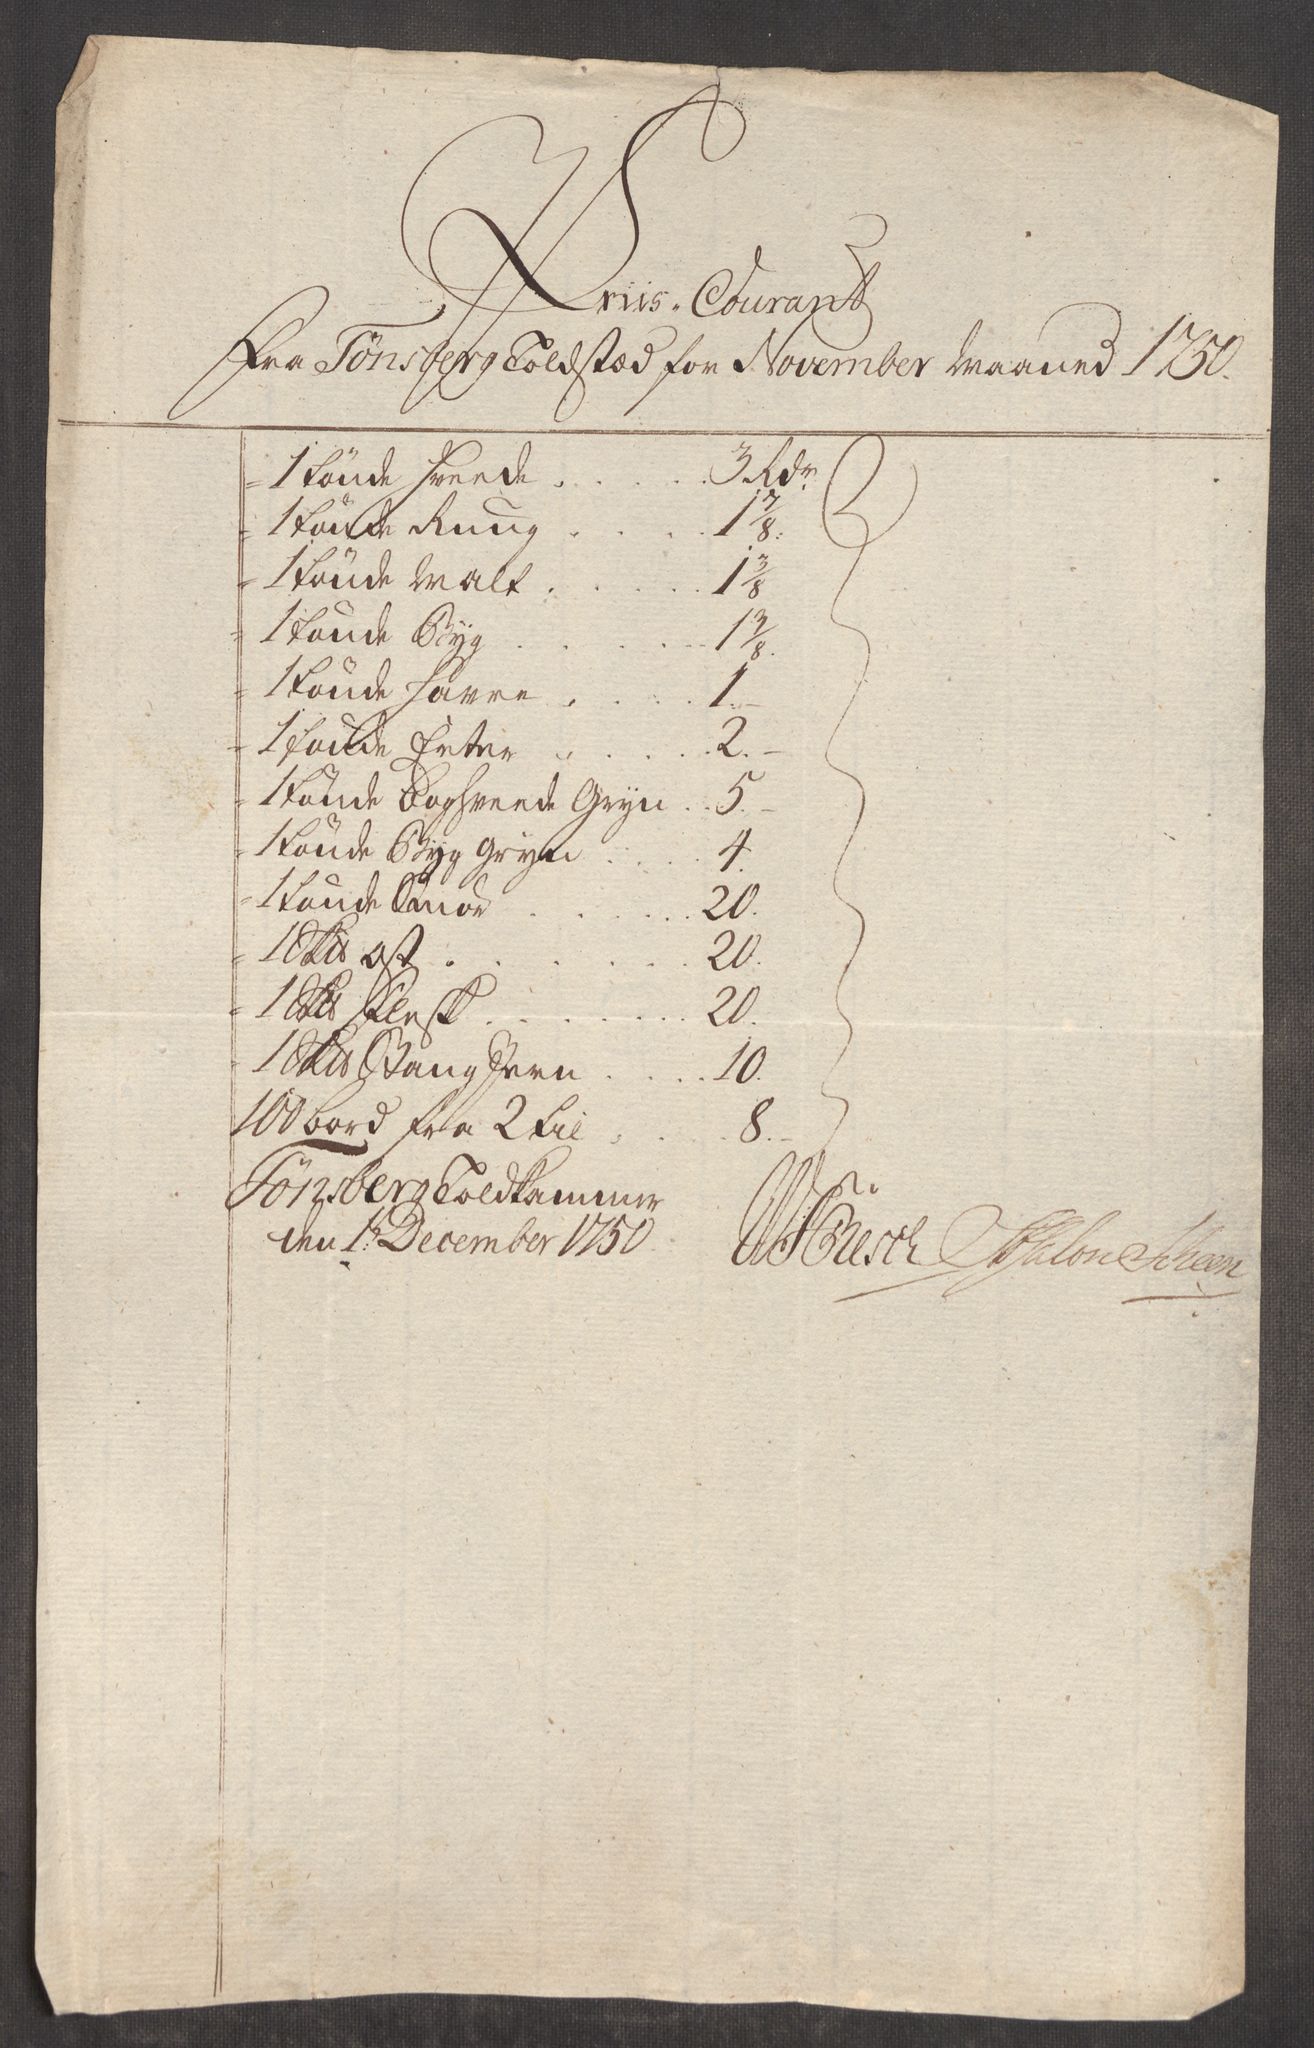 Priis-Courant
Fra Tönsberg Toldstæd for November Maaned 1750.
1 tönde Hveede . . . . . 3 Rdr.
1 tönde Rüüg . . . . 1 7/8.
1 tönde Malt . . . . . 1 3/8
1 tönde Byg . . . . . 1 3/8.
1 tönde Havre . . . . 1.
1 tönde Erter . . . . . 2.
1 tönde Boghveede Gryn . . 5.
1 tönde Byg Gryn . . . . 4.
1 tönde Smör . . . . . . 20.
1 Sk℔ ost . . . . . . 20.
1 Sk℔ Flesk . . . . . . . 20.
1 Sk℔ Stang Jern . . . . 10.
100 bord fra 2 til . . . . 8.
Tönsberg Toldkammer
den 1t. December 1750. Büsch